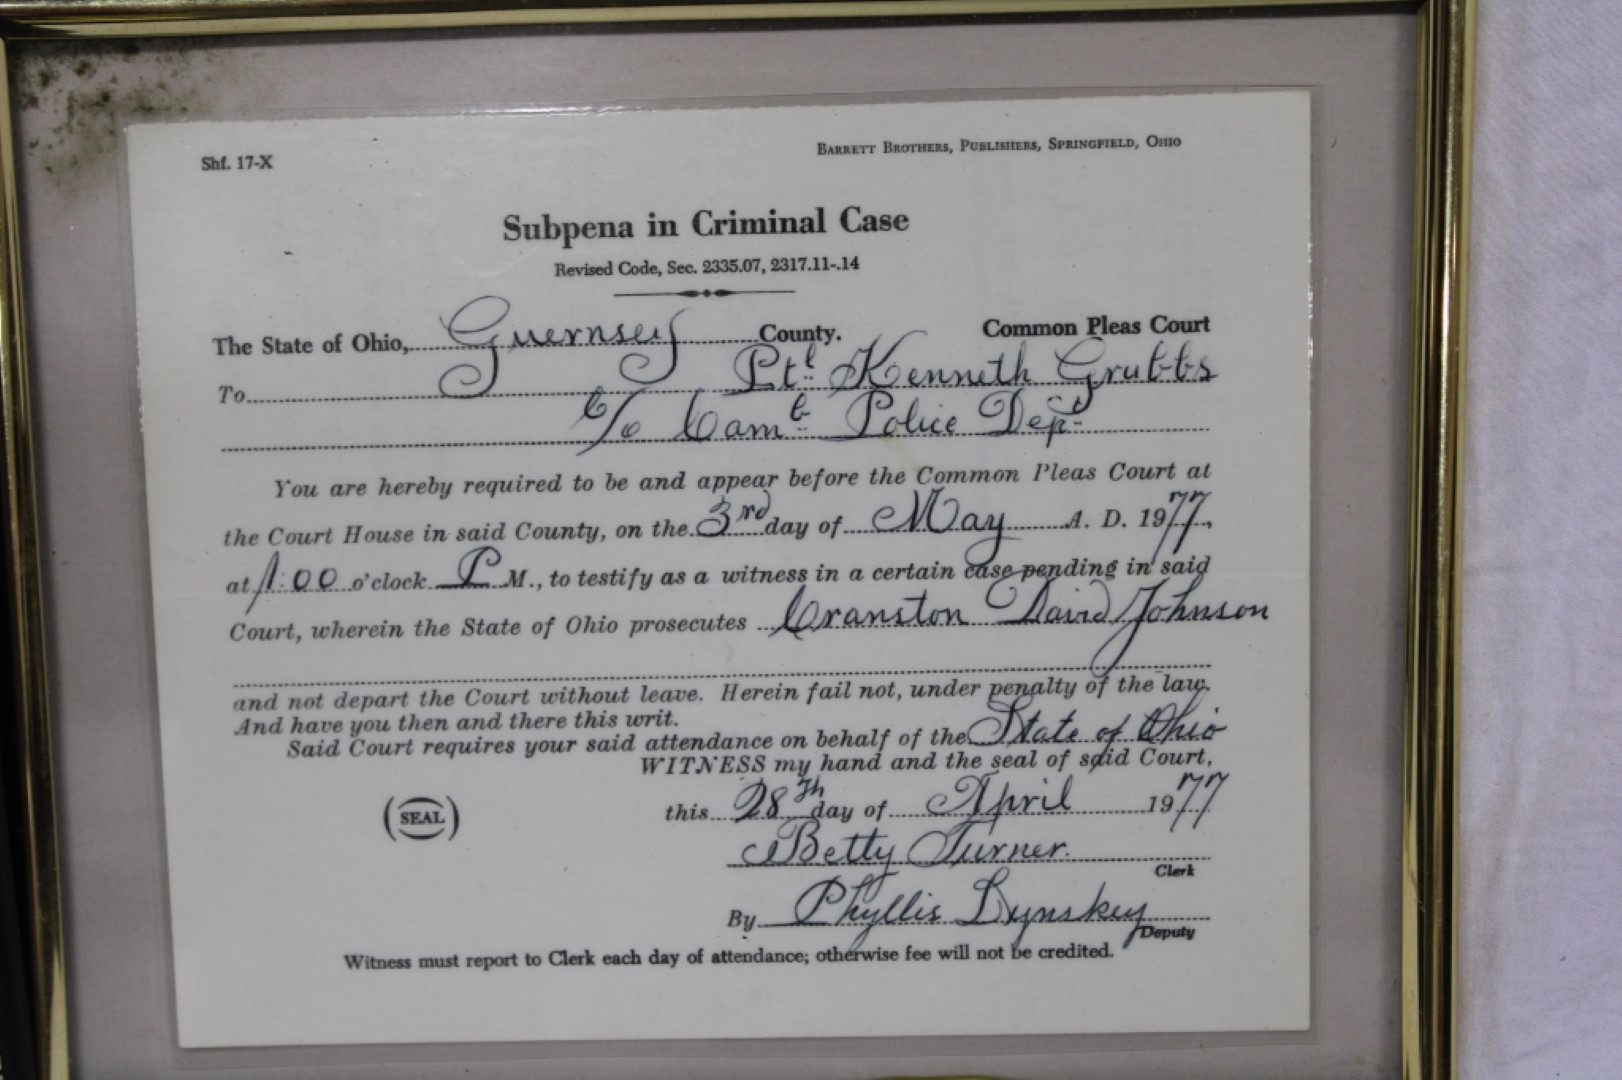 Shf. 17-X
BARRETT BROTHERS, PUBLISHERS, SPRINGFIELD, OHIO
Subpena in Criminal Case
Revised Code, Sec. 2335.07, 2317.11-.14
The State of Ohio, Guernsey County. Common Pleas Court
To Ptl. Kenneth Grubbs
c/o Camb. Police Dept.
You are hereby required to be and appear before the Common Pleas Court at
the Court House in said County, on the 3rd day of May A. D. 1977,
at 1:00 o'clock P M., to testify as a witness in a certain case pending in said
Court, wherein the State of Ohio prosecutes Cranston David Johnson
and not depart the Court without leave. Herein fail not, under penalty of the law.
And have you then and there this writ.
Said Court requires your said attendance on behalf of the State of Ohio
WITNESS my hand and the seal of said Court,
(SEAL) this 28th day of April 1977
Betty Turner.
Clerk
By Phyllis Lynskey
Deputy
Witness must report to Clerk each day of attendance; otherwise fee will not be credited.